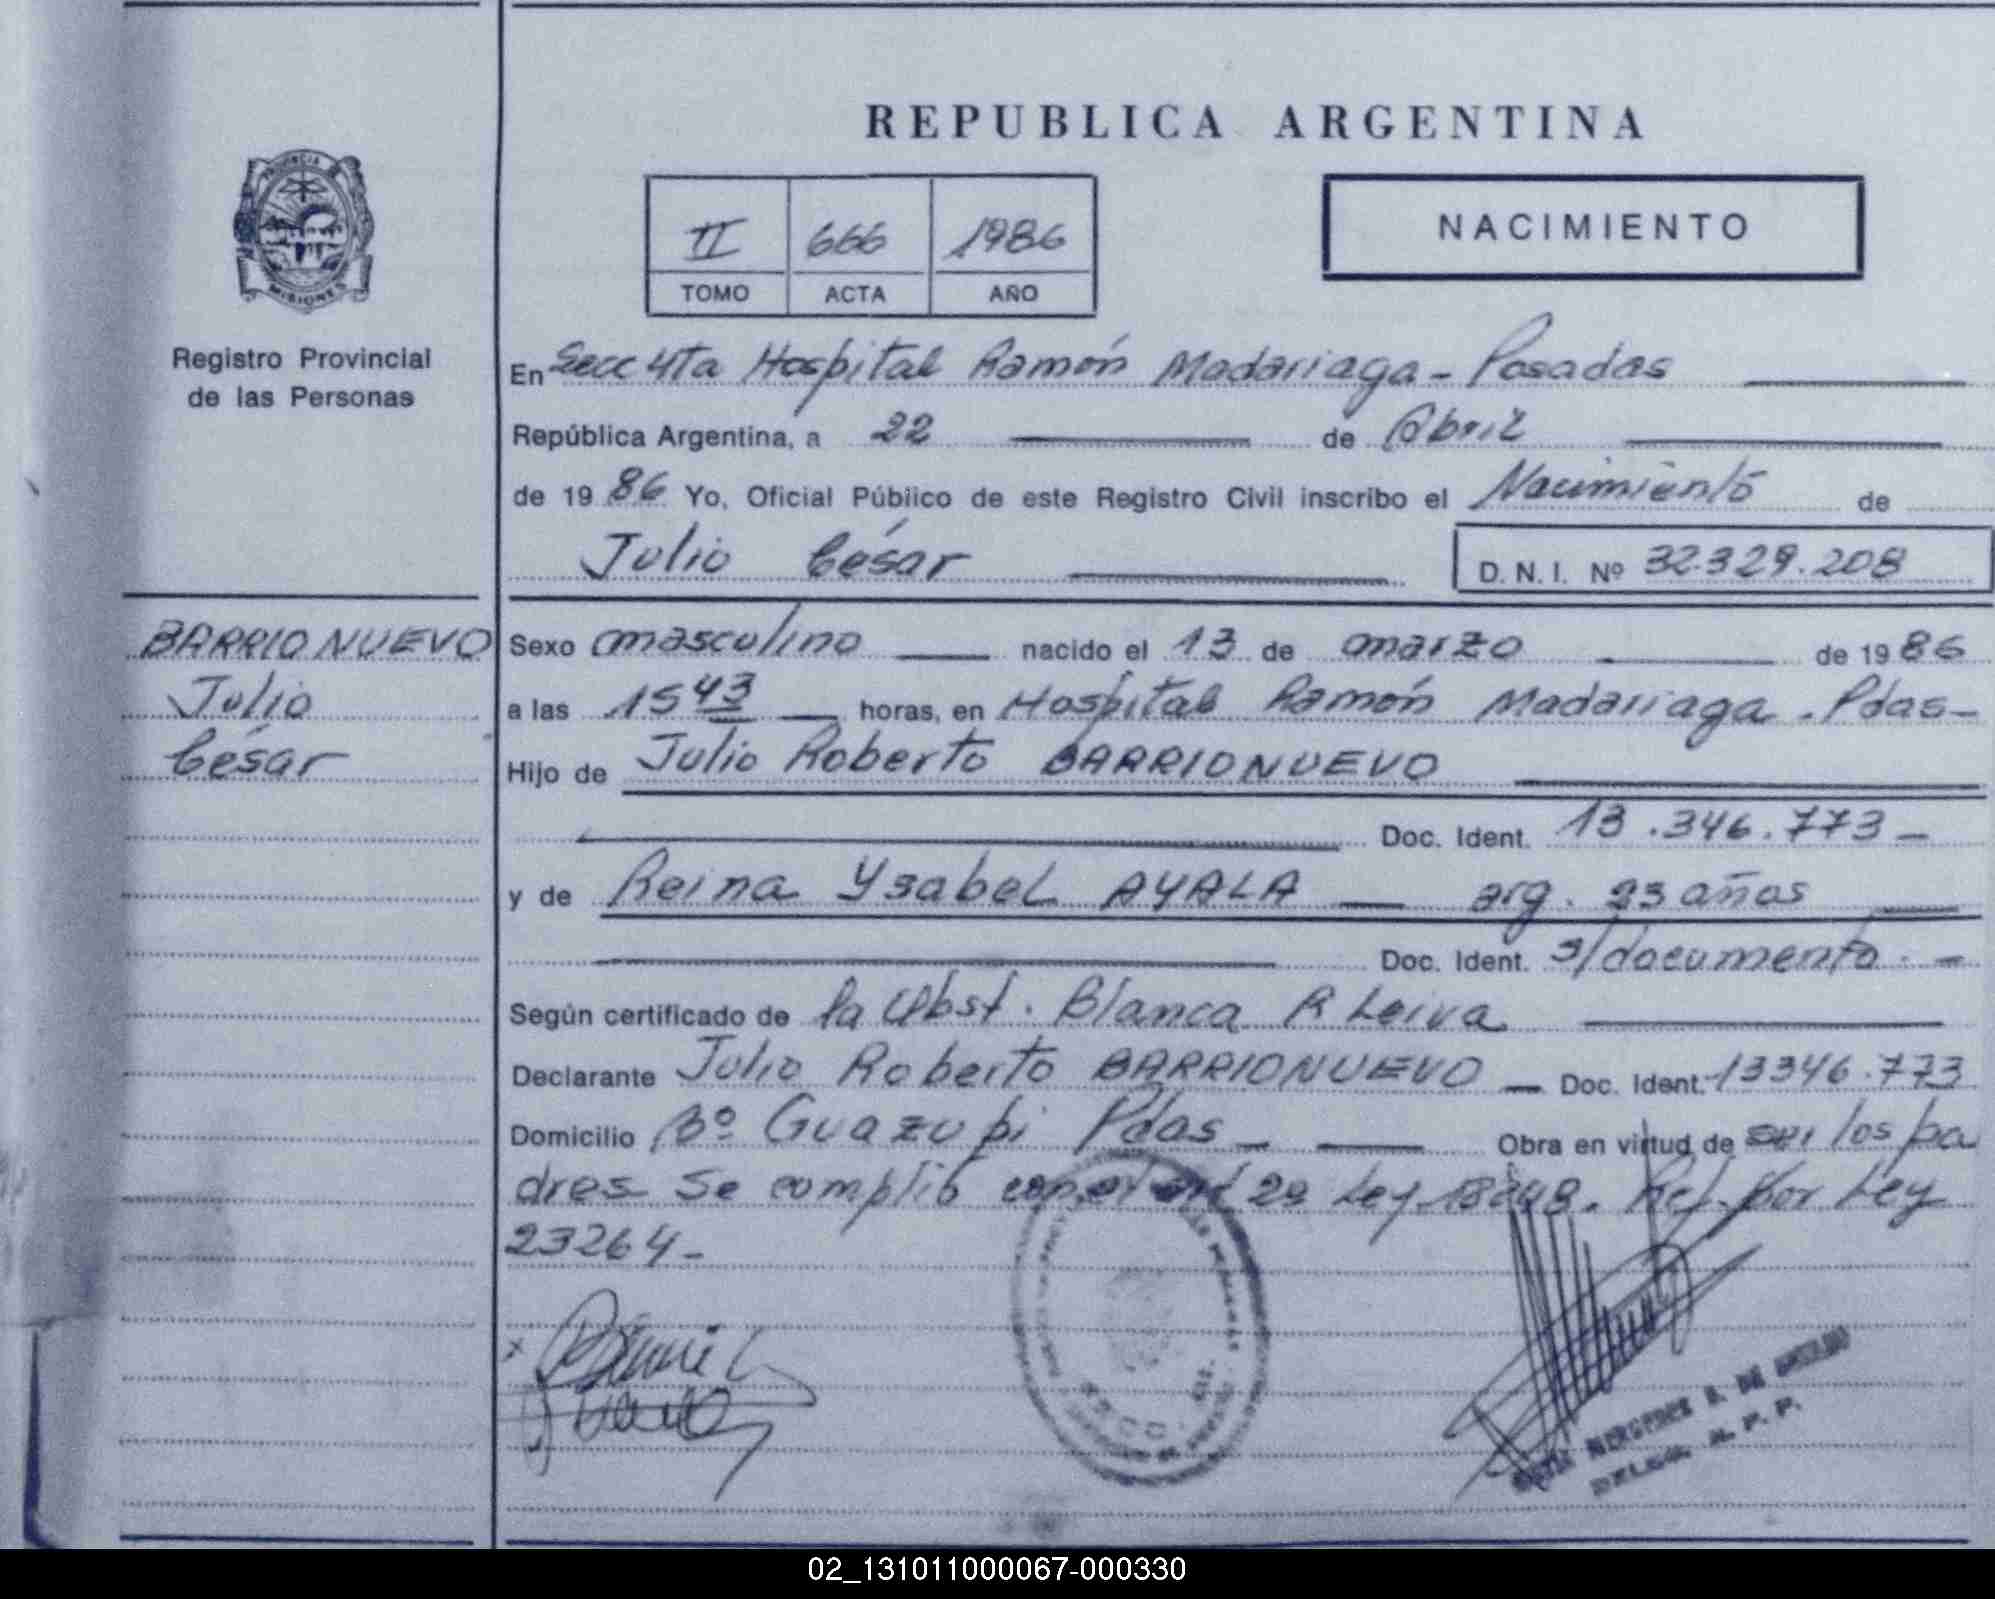 REPUBLICA ARGENTINA
PROVINCIA DE
MISIONES
Registro Provincial
de las Personas
II 666 1986
TOMO ACTA AÑO
NACIMIENTO
En Secc 4Ta Hospital Ramón Madariaga - Posadas
República Argentina, a 22 de Abril
de 19 86 Yo, Oficial Público de este Registro Civil inscribo el Nacimiento de
Julio César
D. N. I. Nº 32.329.208
BARRIONUEVO
Julio
César
Sexo masculino nacido el 13 de marzo de 19 86
a las 15 43 horas, en Hospital Ramón Madariaga . Pdas -
Hijo de Julio Roberto BARRIONUEVO
Doc. Ident. 13.346.773 -
y de Reina Ysabel AYALA arg. 23 años
Doc. Ident. s/documento. -
Según certificado de la Obst. Blanca R Leiva
Declarante Julio Roberto BARRIONUEVO - Doc. Ident. 13346.773
Domicilio Bº Guazupi Pdas Obra en virtud de ser los pa
dres Se complió con el art 2º Ley 18248. Ref. por Ley
23264 -
MERCEDES DE
DELEG. R. P. P.
02_131011000067-000330